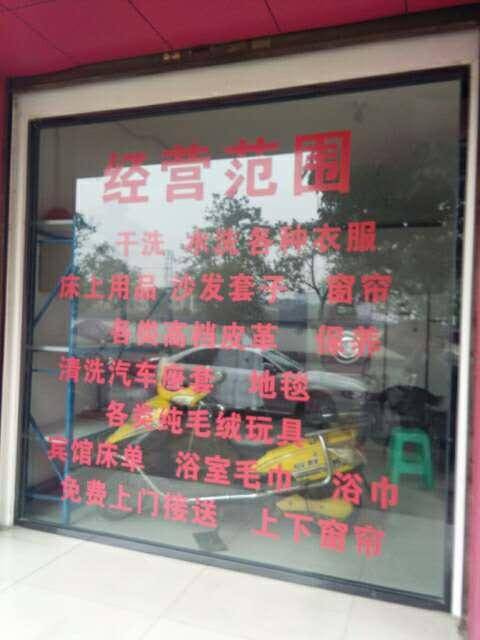 经营范围
干洗 水洗各种衣服
床上用品 沙发套子 窗帘
各类高档皮革 保养
清洗汽车座套 地毯
各类纯毛绒玩具
宾馆床单 浴室毛巾 浴巾
免费上门接送 上下窗帘